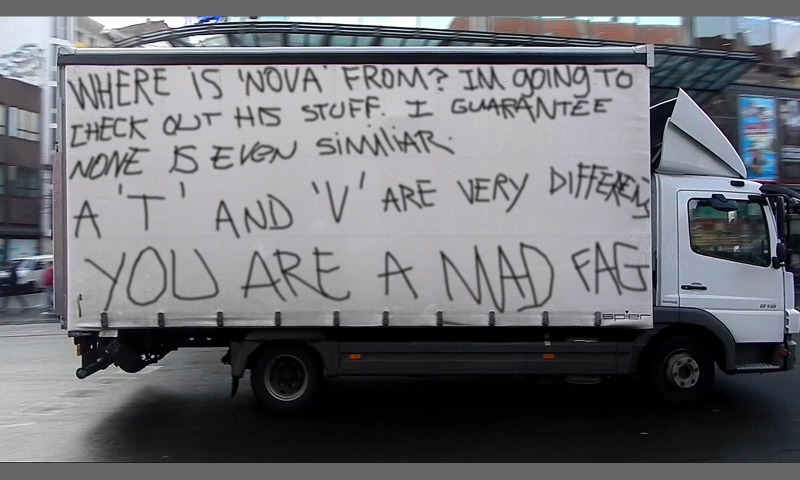 WHERE IS 'NOVA' FROM? IM gOING TO
CHECK OUT HIS STUFF. I GUARANTEE
NONE IS EVEN SIMILIAR.
A 'T' AND 'V' ARE VERY DIFFERENT
YOU ARE A MAD FAG
spier
818